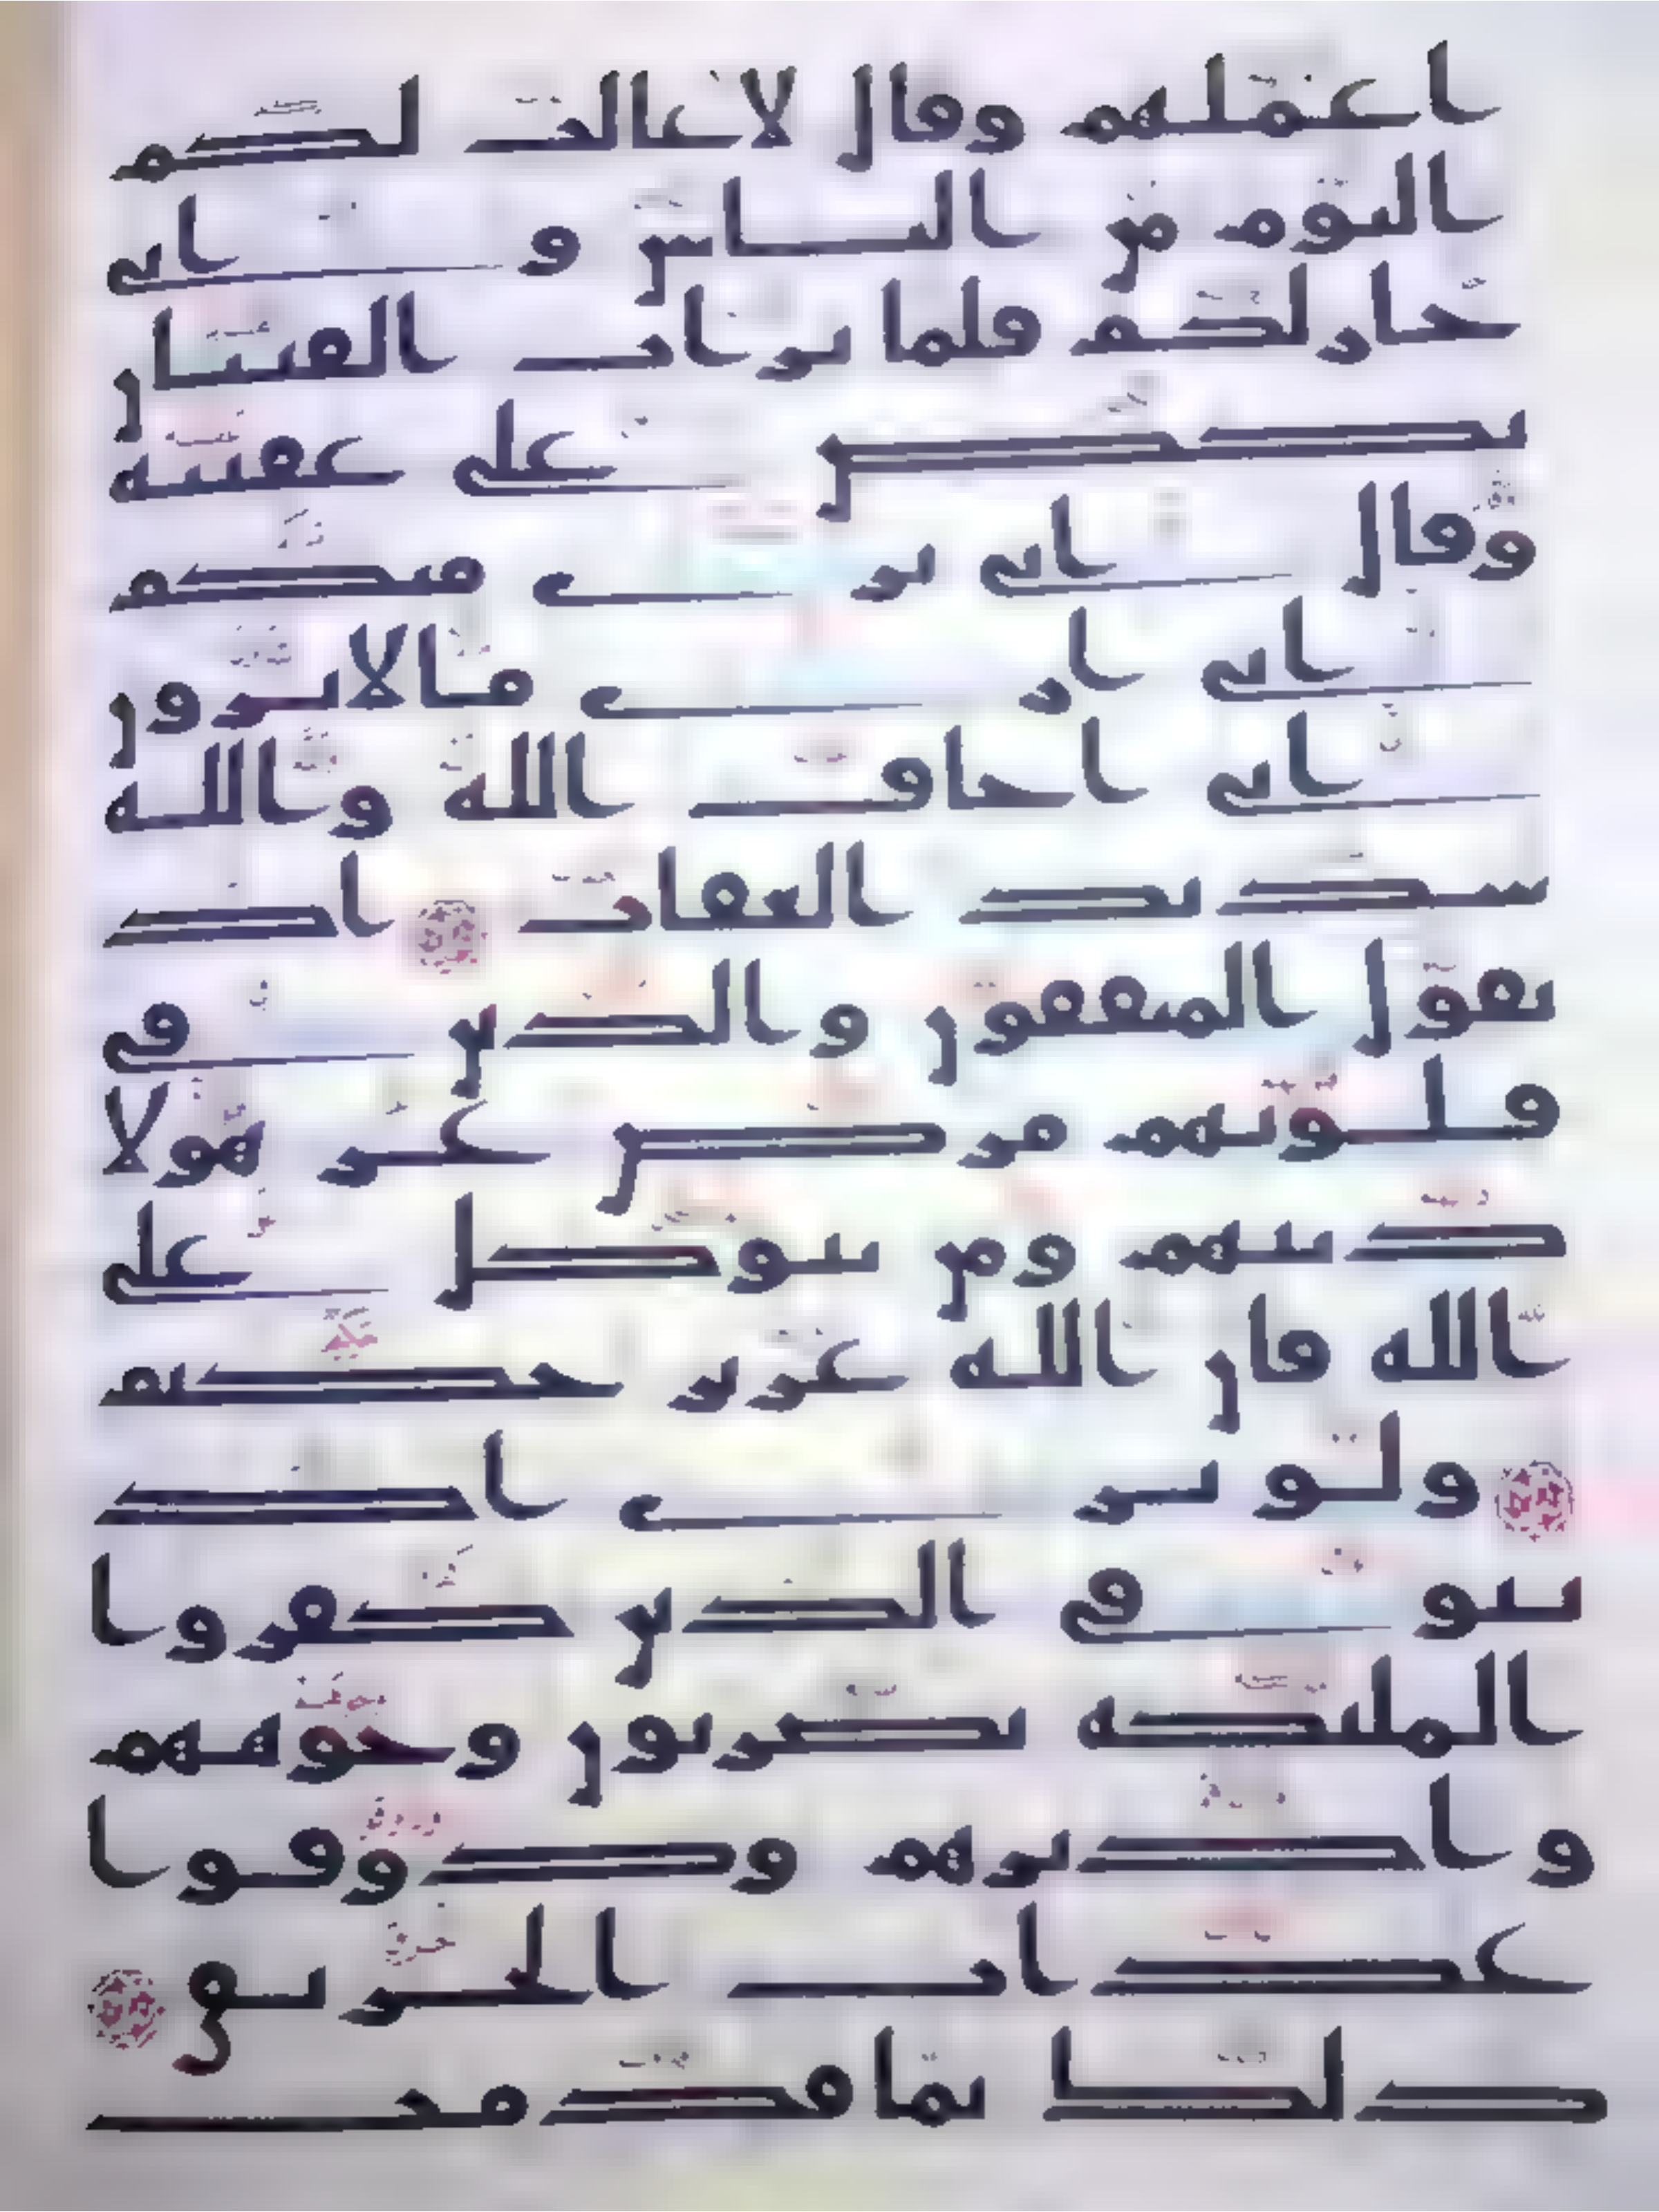 اعملهم وقال لا غالب لكم
اليوم من الناس و اني
جار لكم فلما ترات الفئتان
نكص على عقبيه
وقال اني بري منكم
اني ارى ما لا ترون
اني اخاف الله والله
شديد العقاب اذ
يقول المنفقون والذين في
قلوبهم مرض غر هولا
دينهم ومن يتوكل على
الله فان الله عزيز حكيم
ولو ترى اذ
يتوفى الذين كفروا
الملئكة يضربون وجوههم
وادبرهم وذوقوا
عذاب الحريق
ذلك بما قدمت